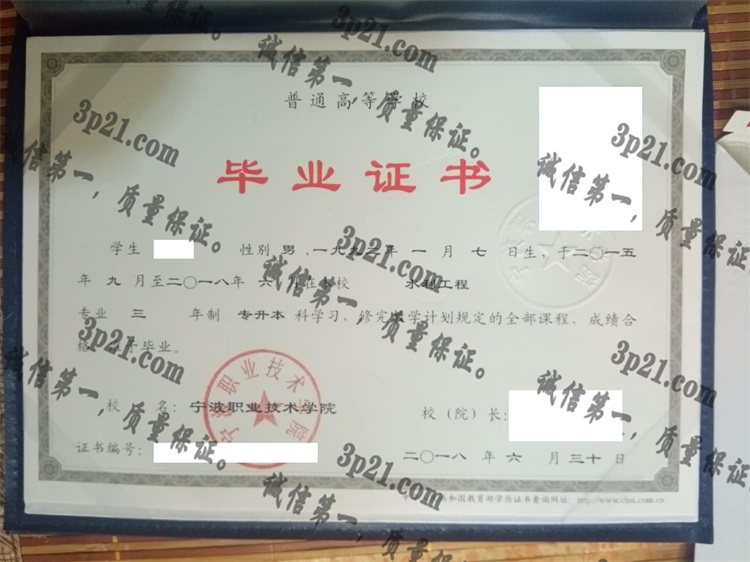 普通高等学校
毕业证书
学生 性别 男 ,一九九 年 一 月 七 日生,于二〇一五
年 九 月至二〇一八年 六 月在本校 水利工程
专业 三 年制 专升本 科学习,修完教学计划规定的全部课程,成绩合
格,准予毕业。
校 名:宁波职业技术学院
校(院)长:
证书编号:
二〇一八 年 六 月 三十 日
和国教育部学历证书查询网址 http://www.chsi.com.cn
宁波职业技术学院
3p21.com
诚信第一,质量保证。
3p21.com
诚信第一,质量保证。
3p21.com
诚信第一,质量保证。
3p21.com
诚信第一,质量保证。
3p21.com
诚信第一,质量保证。
3p21.com
诚信第一,质量保证。
3p21.com
诚信第一,质量保证。
3p21.com
诚信第一,质量保证。